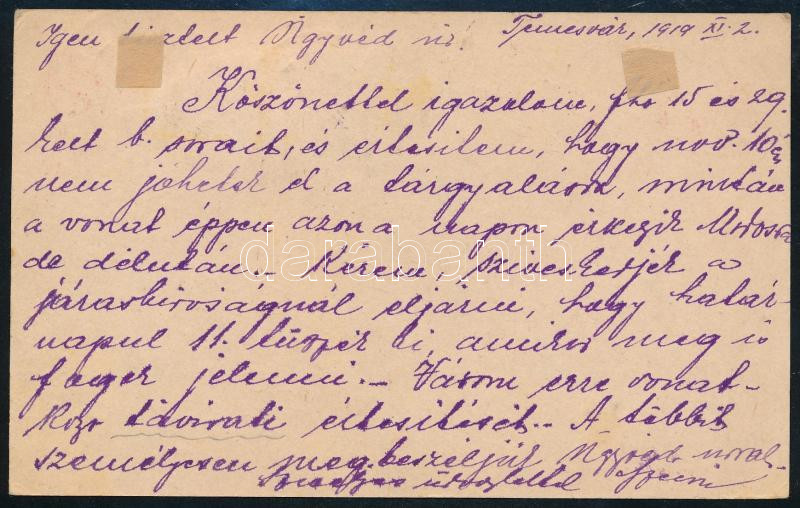 Igen tisztelt Ügyvéd úr! Temesvár, 1919 XI. 2.
Köszönettel igazolom, f. ho 15 és 29.
kelt b. sorait, és értesitem, hogy nov. 10én
nem jöhetek el a tárgyalásra, miután
a vonat éppen azon a napon érkezik
de délután. - Kérem, sziveskedjék a
járásbiróságnál eljárni, hogy határ-
napul 11. tüzzék ki, amikor meg is
fogok jelenni. - Várom erre vonat-
kozo távirati értesitését. - A többit
személyesen megbeszéljük
üdvözlettel
darabanth